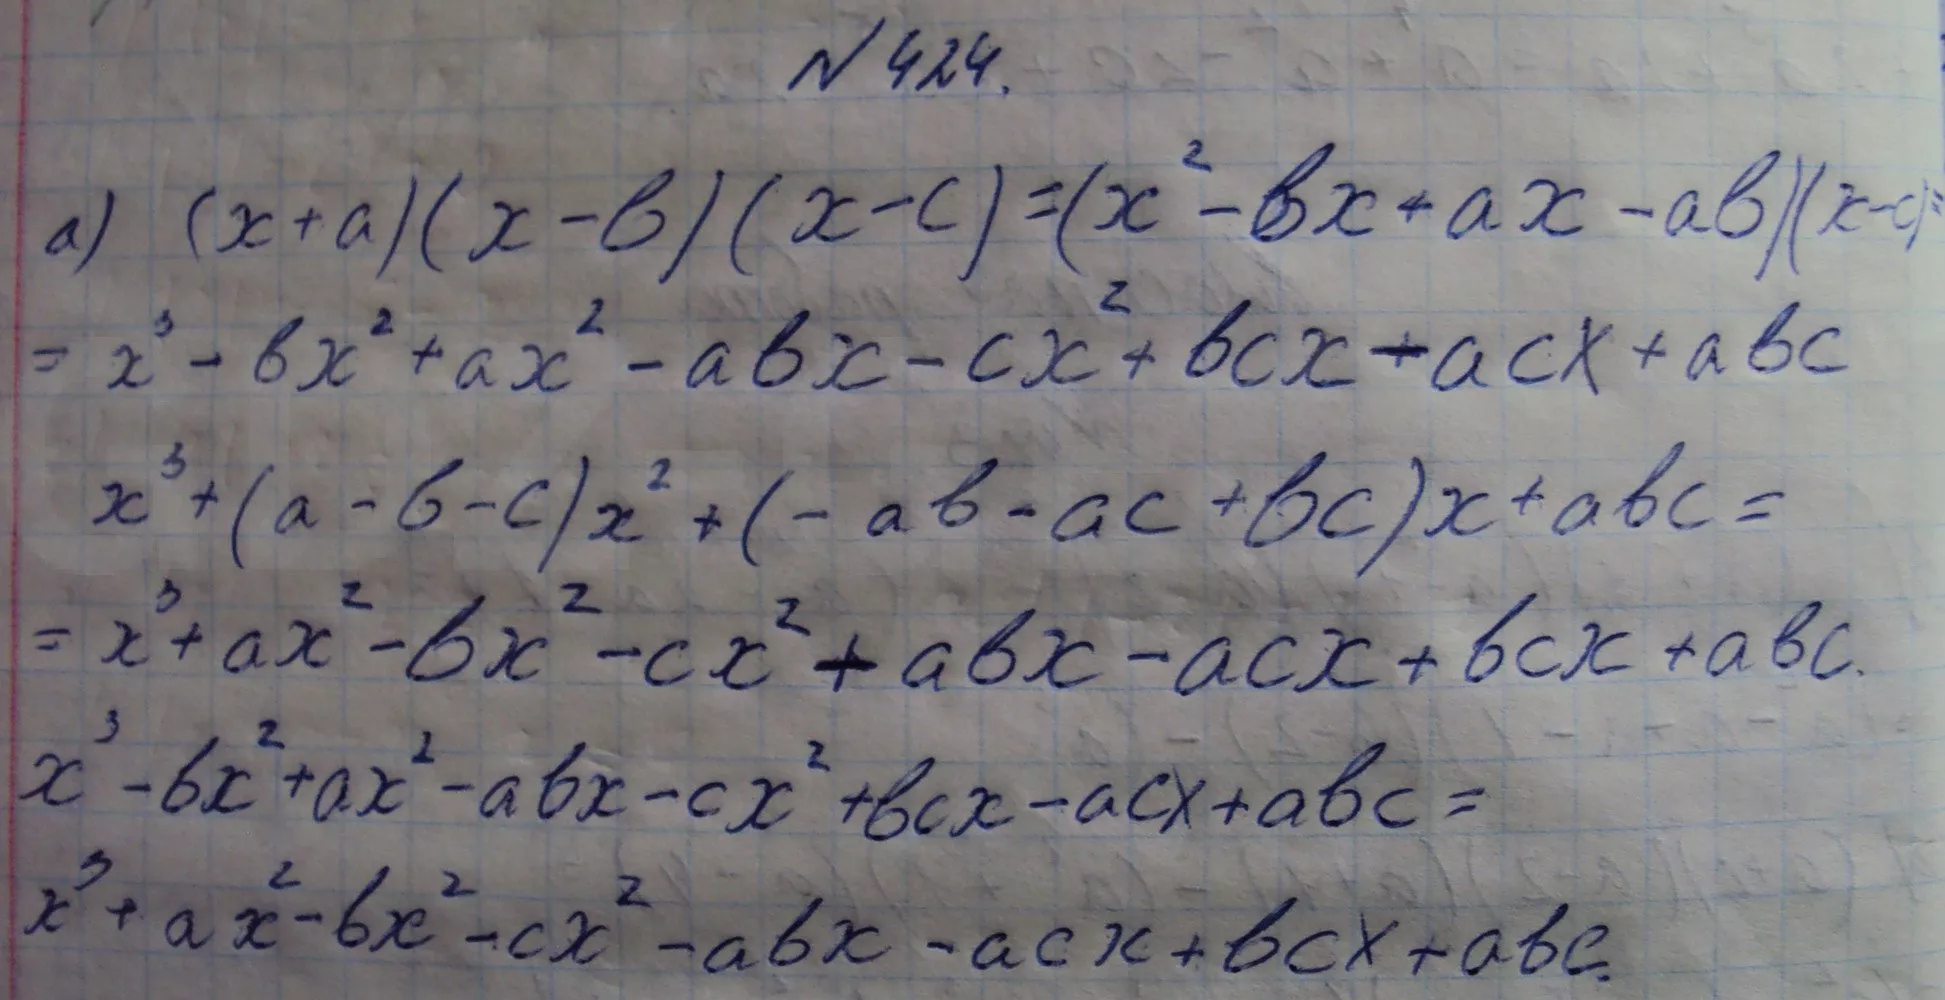 № 424.
а) (x+a)(x-в)(x-c)=(x²-вx+ax-aв)(x-c)=
= x³-вx²+ax²-aвx-cx²+вcx-acx+aвc
x³+(a-в-c)x²+(-aв-ac+вc)x+aвc=
= x³+ax²-вx²-cx²+aвx-acx+вcx+aвc.
x³-вx²+ax²-aвx-cx²+вcx-acx+aвc=
x³+ax²-вx²-cx²-aвx-acx+вcx+aвc.